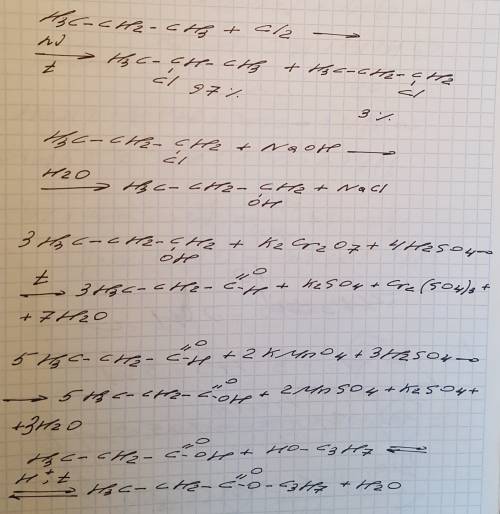 H3C-CH2-CH3 + Cl2 ⟶
hν
⟶
t
H3C-CH-CH3 + H3C-CH2-CH2
Cl
Cl
97%
3%
H3C-CH2-CH2 + NaOH ⟶
Cl
H2O
⟶ H3C-CH2-CH2 + NaCl
OH
3H3C-CH2-CH2 + K2Cr2O7 + 4H2SO4 ⟶
OH
t
⟶ 3H3C-CH2-C(=O)-H + K2SO4 + Cr2(SO4)3 +
+ 7H2O
5H3C-CH2-C(=O)-H + 2KMnO4 + 3H2SO4 ⟶
⟶ 5H3C-CH2-C(=O)-OH + 2MnSO4 + K2SO4 +
+ 3H2O
H3C-CH2-C(=O)-OH + HO-C3H7 ⇌
H+, t
⇌ H3C-CH2-C(=O)-O-C3H7 + H2O